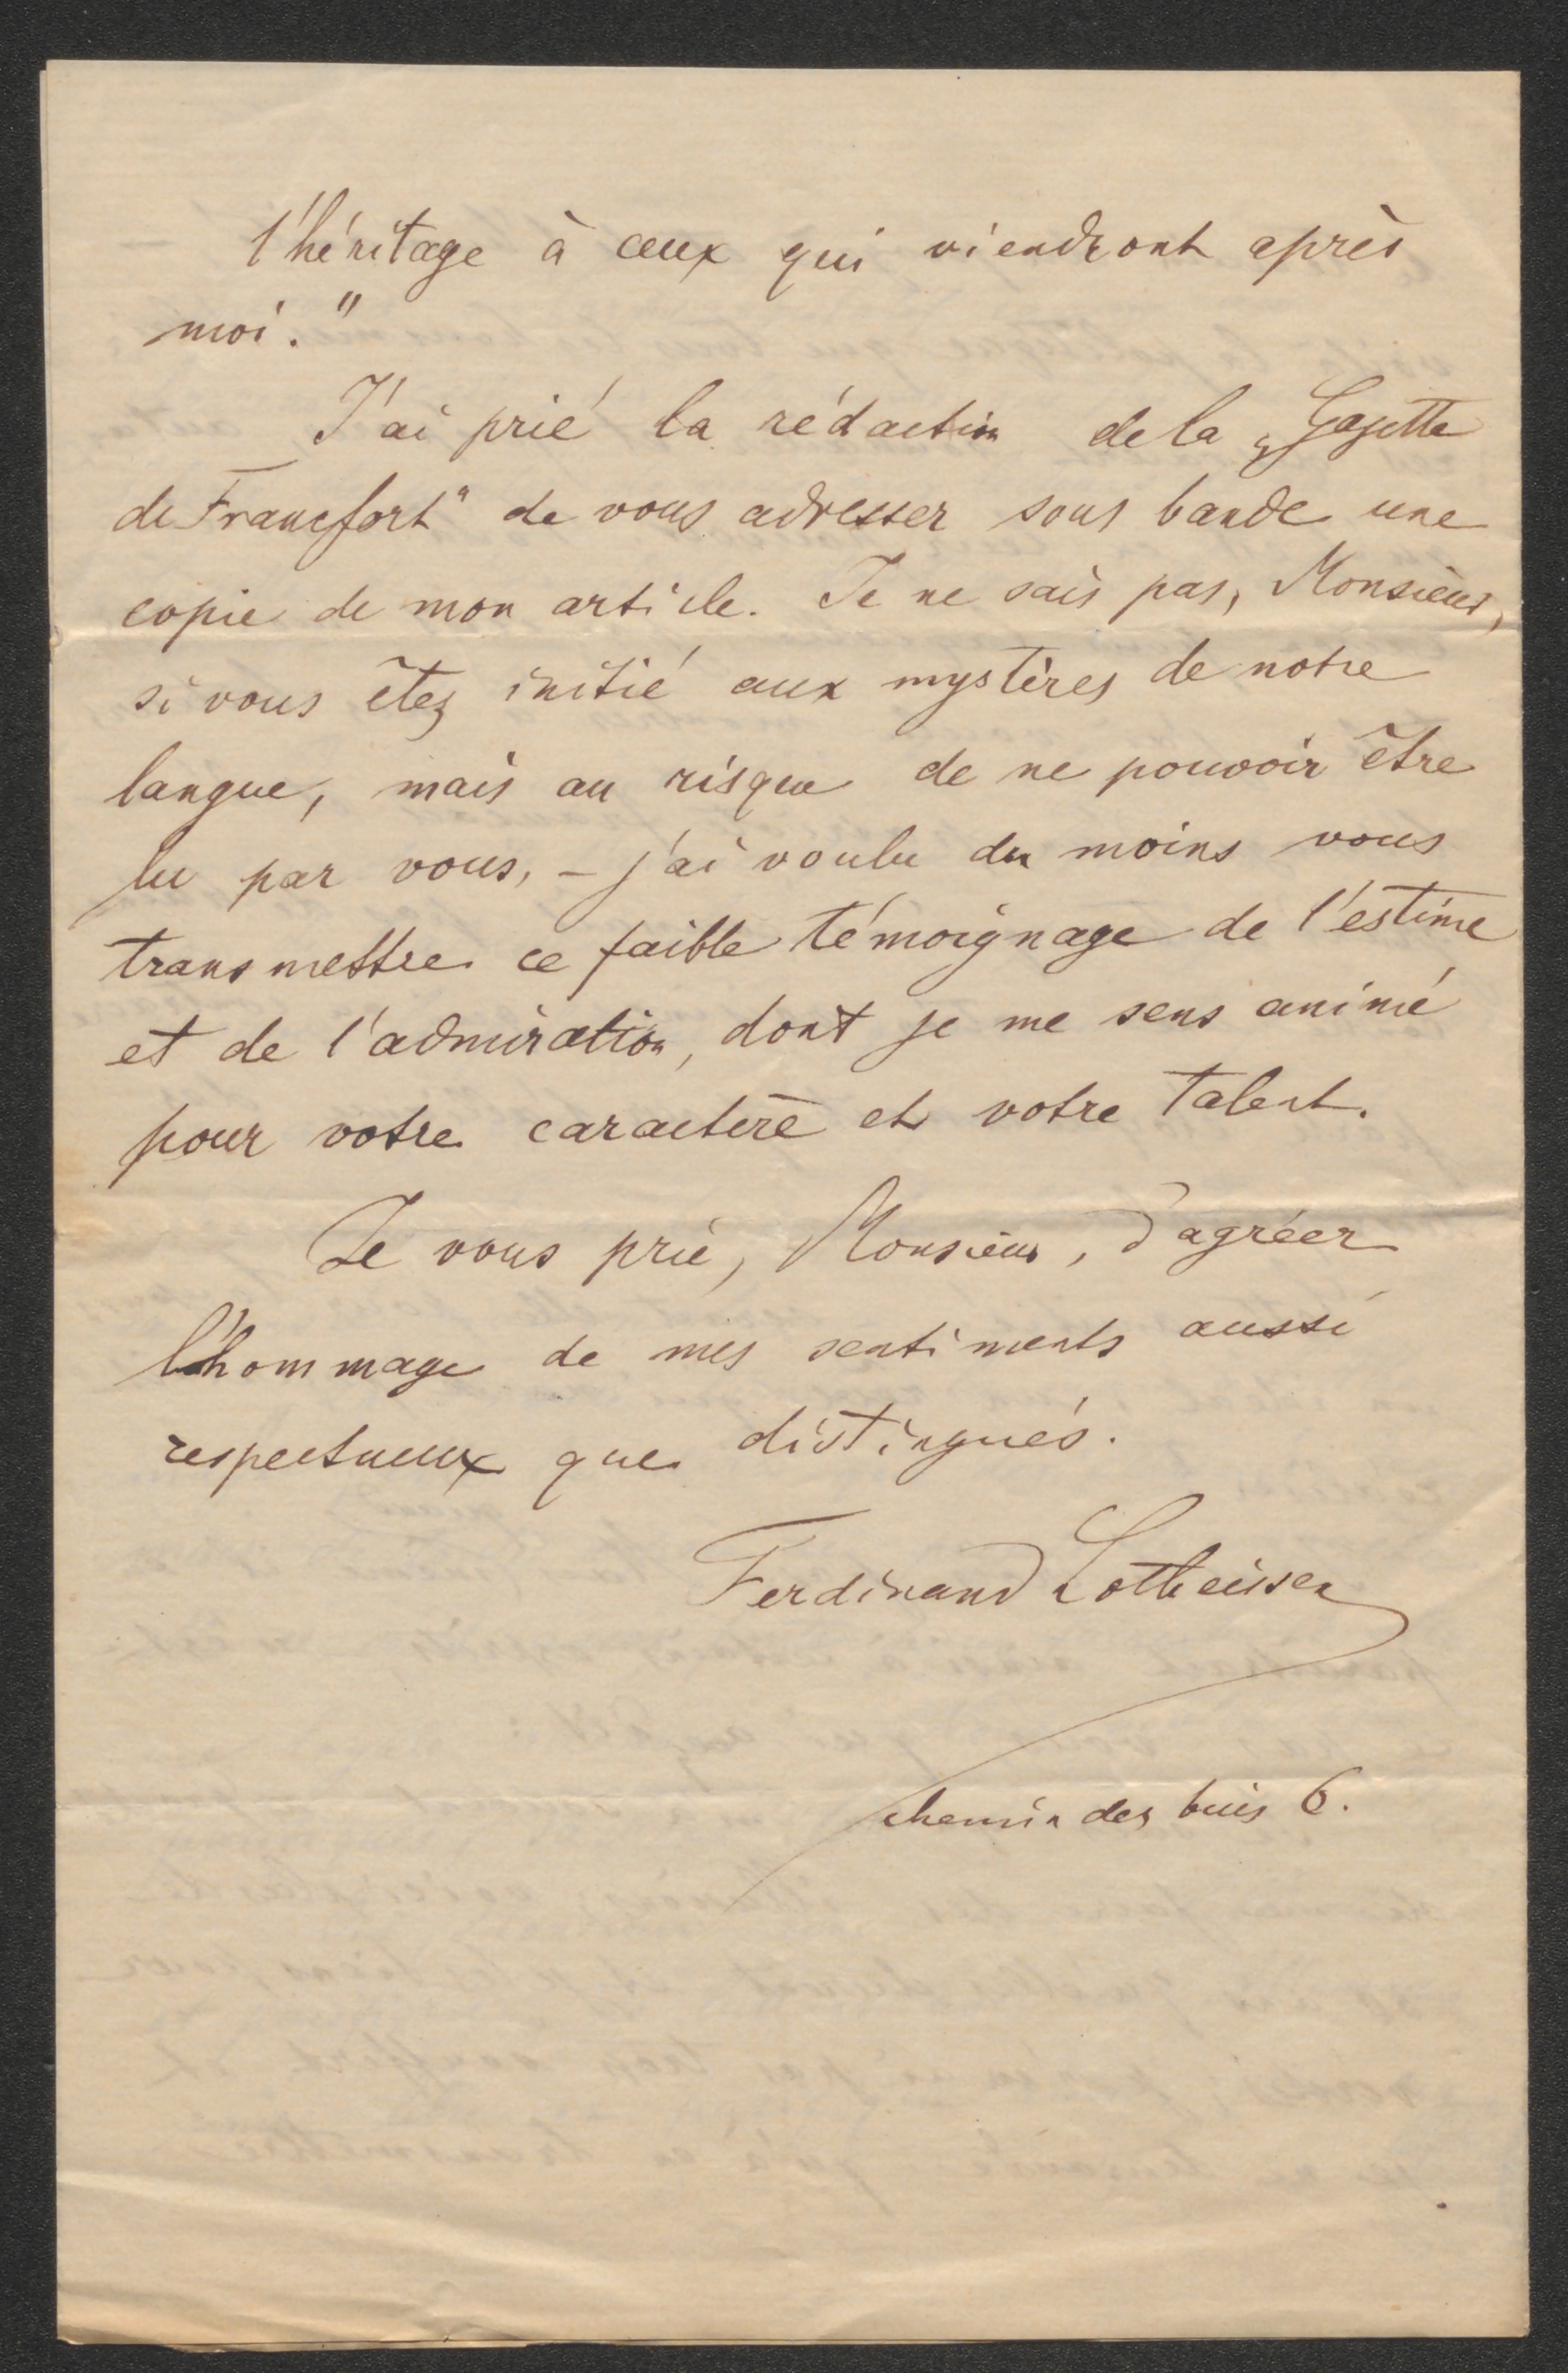 l'héritage à ceux qui viendront après
moi."
J'ai prié la rédaction de la „Gazette
de Francfort" de vous adresser sous bande une
copie de mon article. Je ne sais pas, Monsieur,
si vous êtes initié aux mystères de notre
langue, mais au risque de ne pouvoir être
lu par vous, – j'ai voulu du moins vous
transmettre ce faible témoignage de l'estime
et de l'admiration, dont je me sens animé
pour votre caractère et votre talent.
Je vous prie, Monsieur, d'agréer
l'hommage de mes sentiments aussi
respectueux que distingués.
Ferdinand Lotheissen
chemin des buis 6.